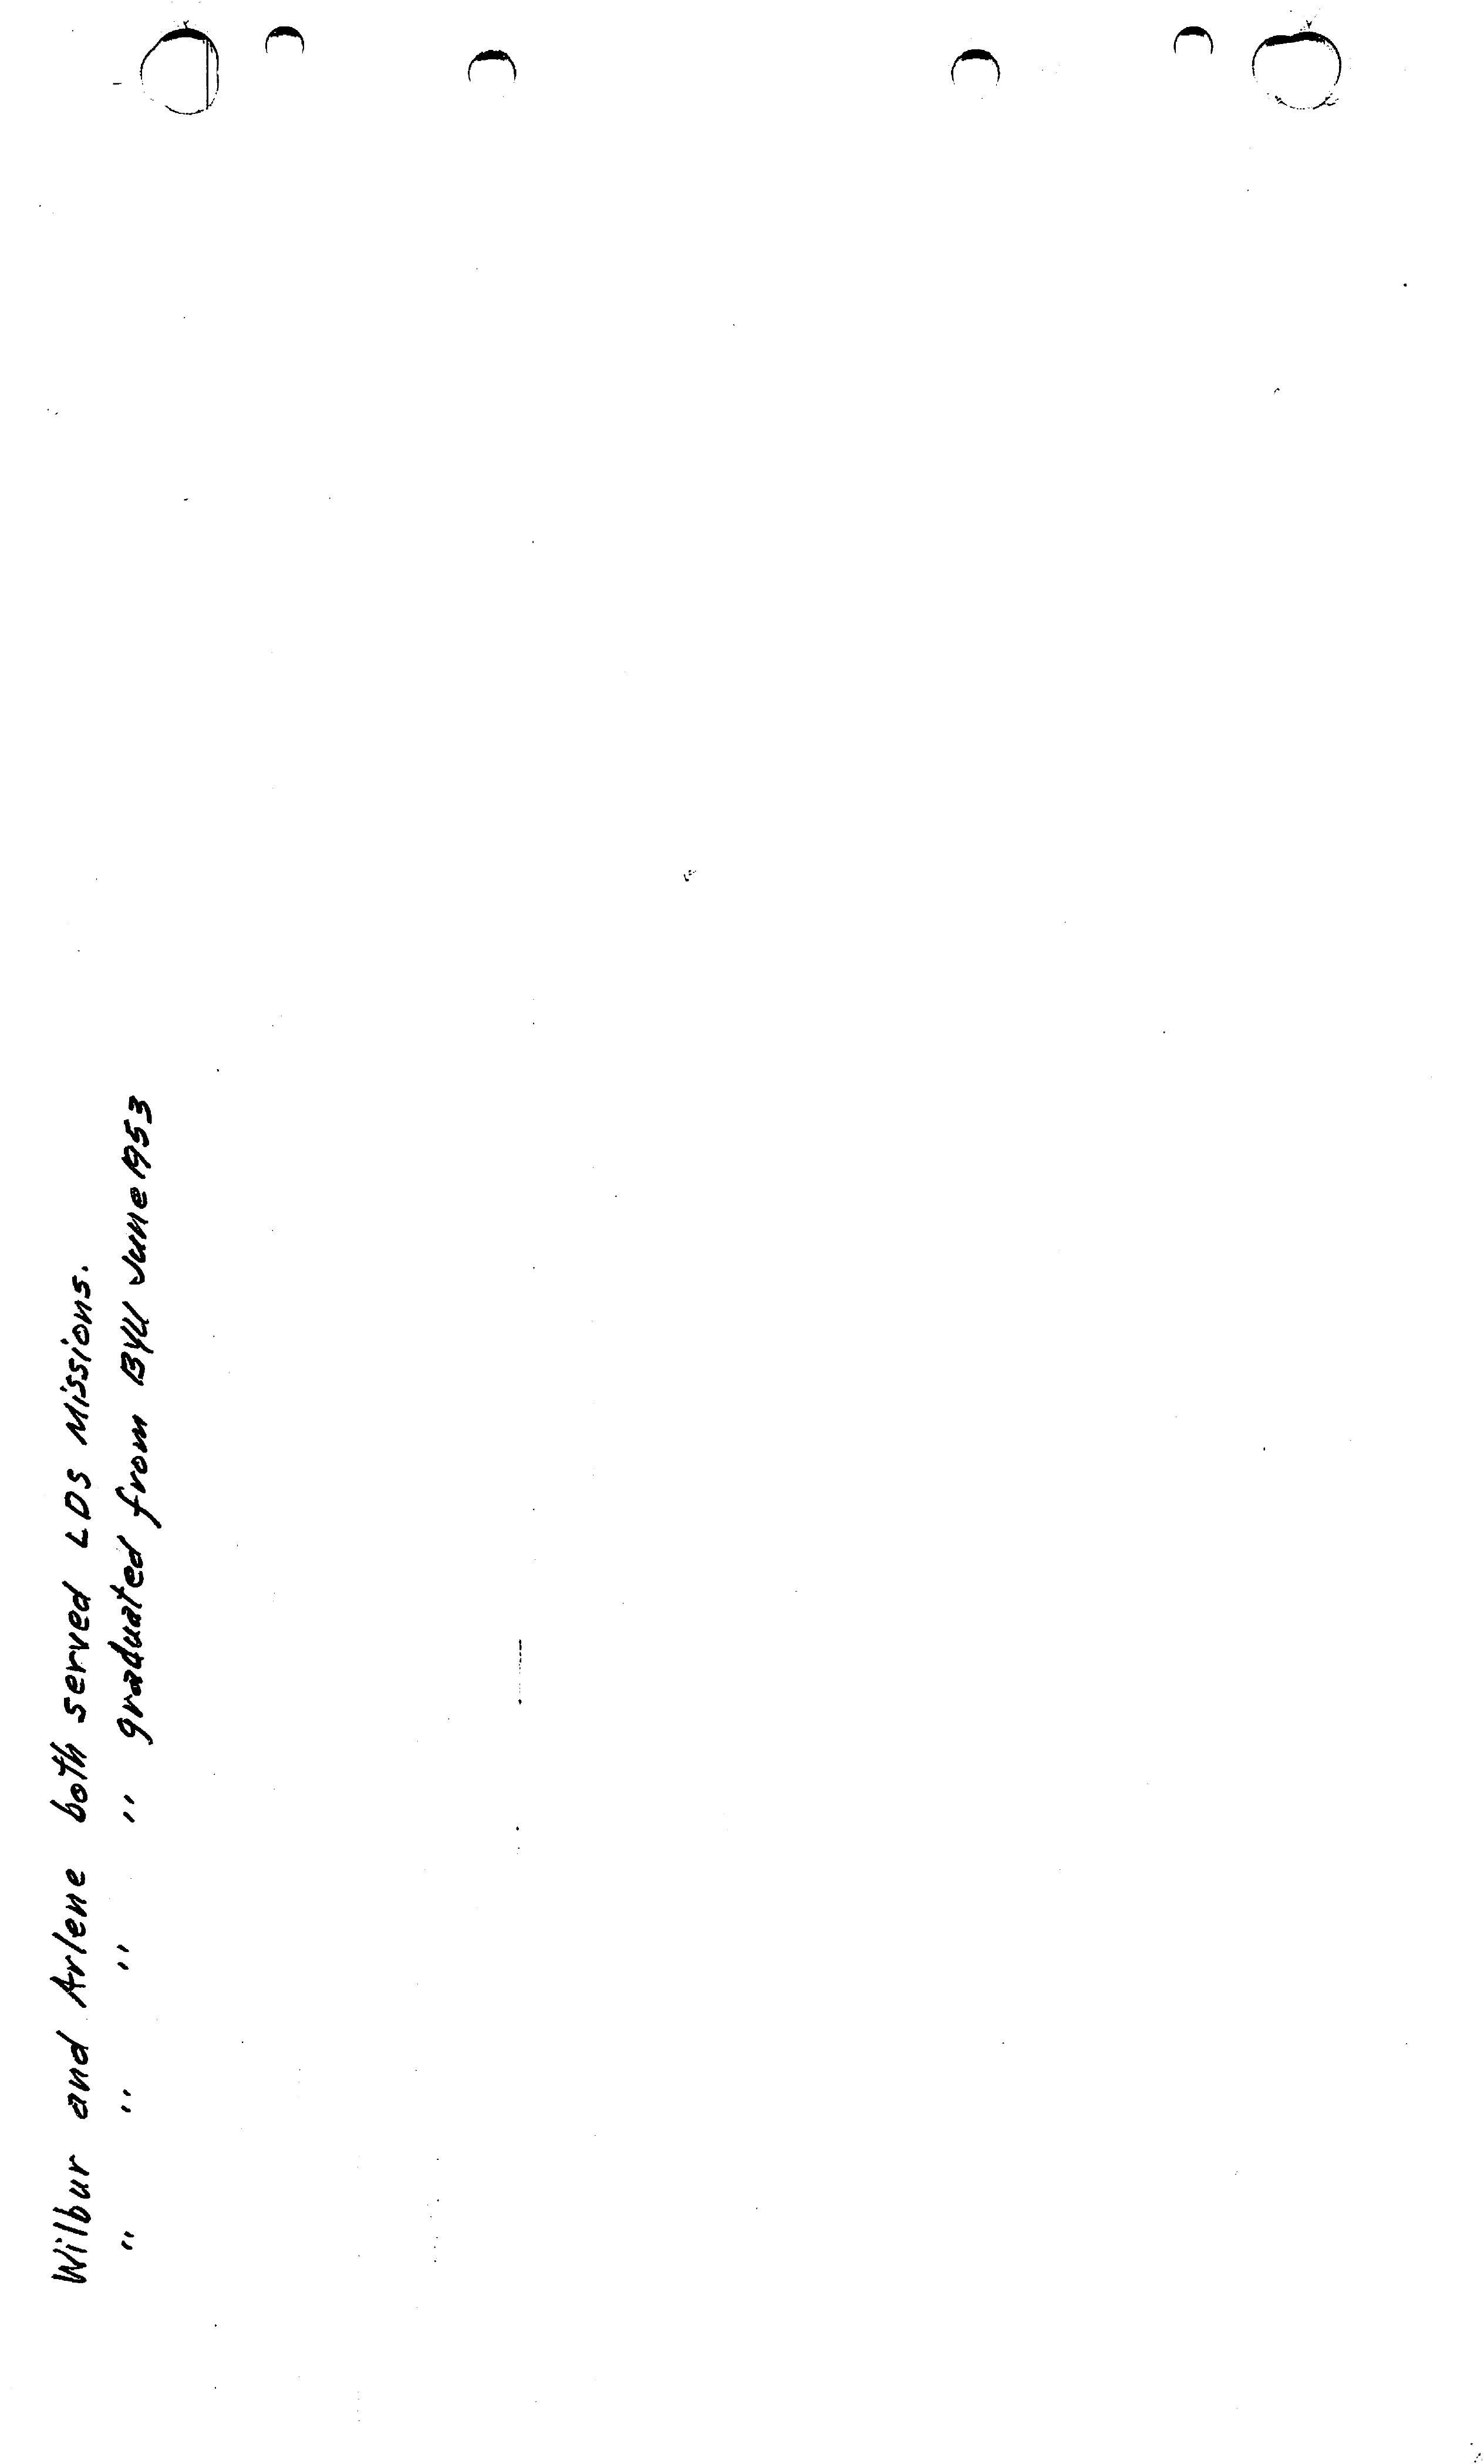 Wilbur and Arlene both served LDS Missions.
" " " " graduated from BYU June 1953